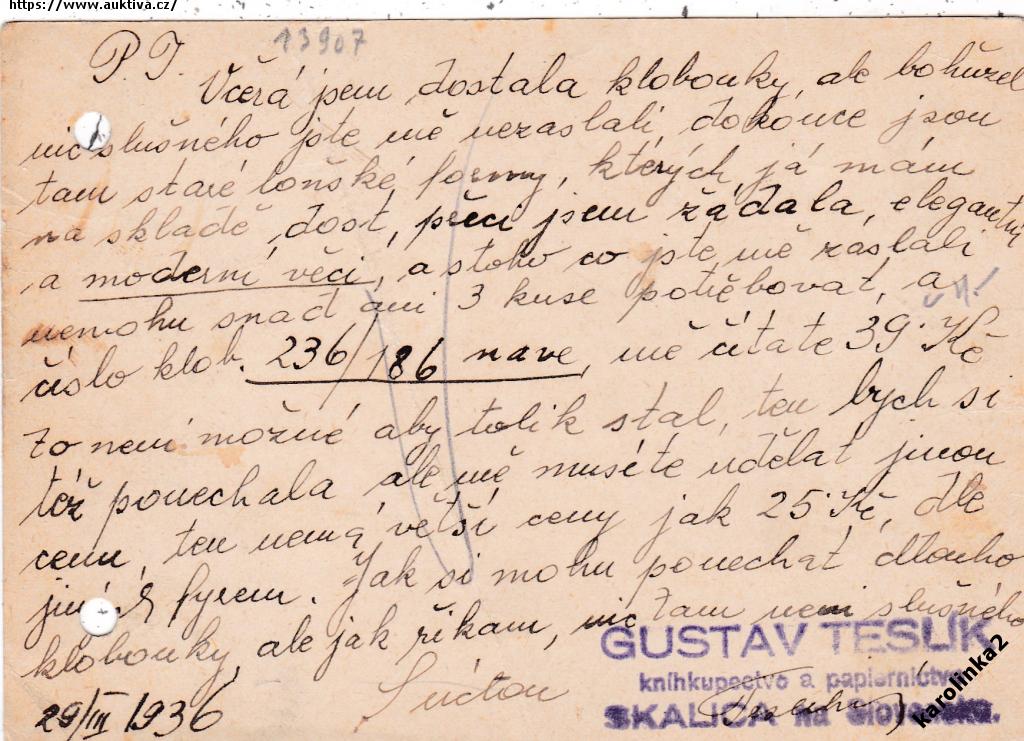 https://www.auktiva.cz/
13907
P. T.
Včerá jsem dostala klobouky, ale bohužel
nic slušného jste mě nezaslali, dokonce jsou
tam staré loňské formy, kterých já mám
na skladě dost, přeci jsem žádala, elegantní
a moderní věci, a stoho co jste mě záslali
nemohu snad ani 3 kuse potřebovat, a
číslo klob. 236/186 nave, mě čitate 39 Kč
to není možné aby tolik stal, ten bych si
též ponechala ale mě musíte udělat jinou
cenu, ten nemá větší ceny jak 25 Kč, dle
fyrem. Jak si mohu ponechat dlouho
klobouky, ale jak řikam, nic tam neni slušného
S úctou
29/III 1936
GUSTAV TESLÍK
kníhkupectvo a papierníctvo
SKALICA na Slovensku.
karolinka2